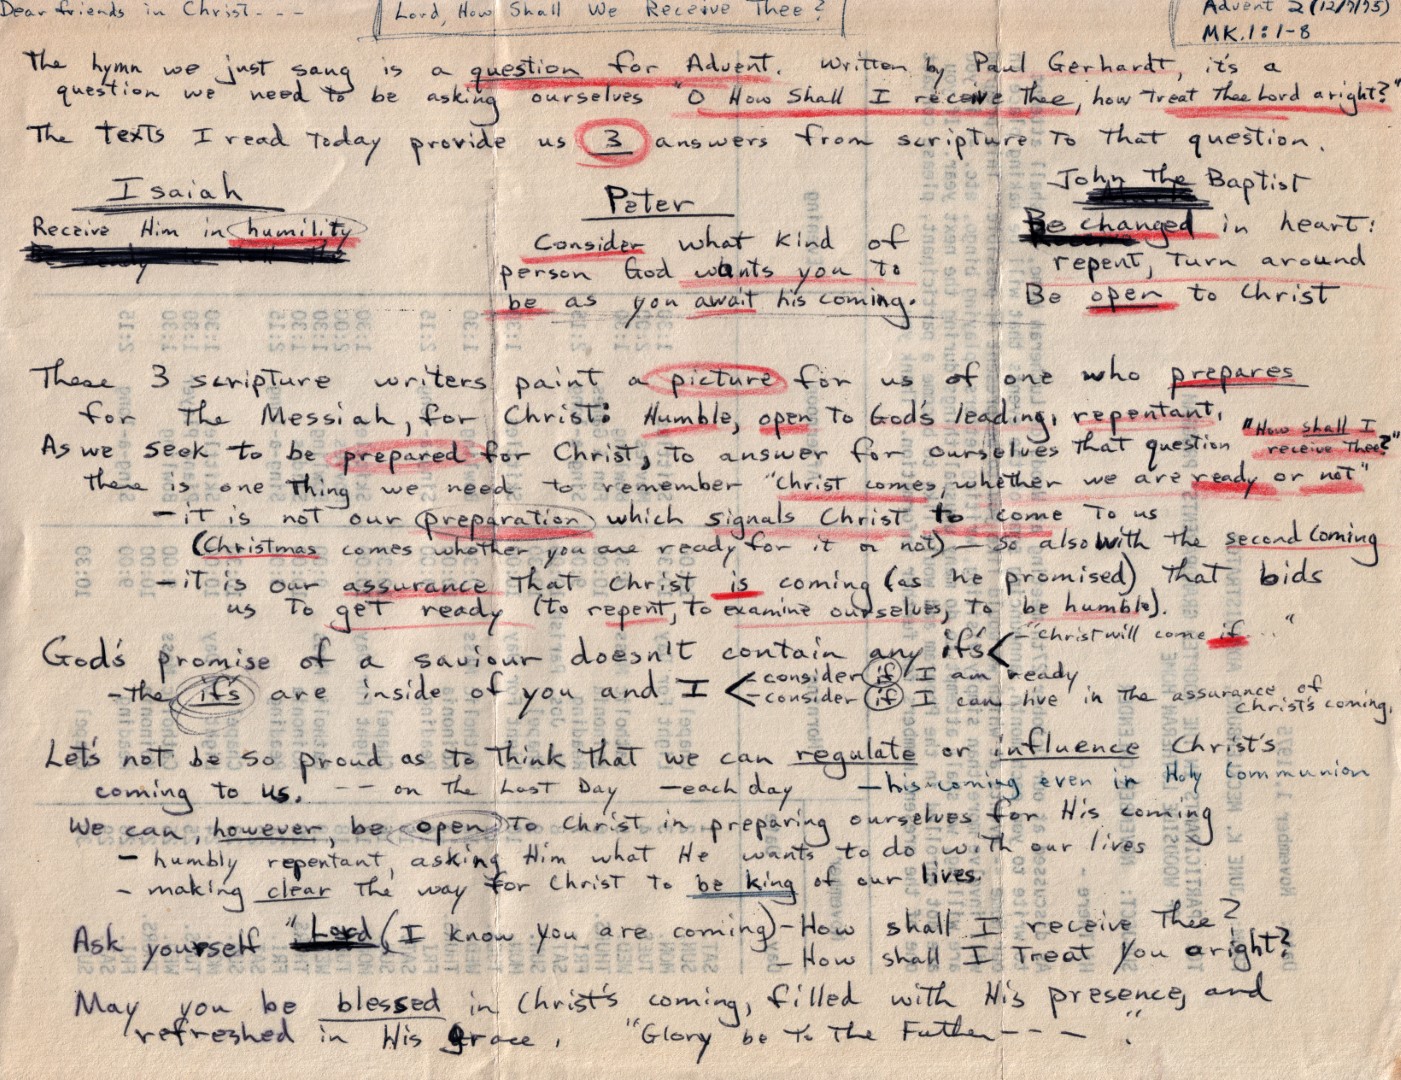 Dear friends in Christ - - -
Lord, How Shall We Receive Thee?
Advent 2 (12/7/75)
MK. 1:1-8
The hymn we just sang is a question for Advent. Written by Paul Gerhardt, it's a
question we need to be asking ourselves "O How Shall I receive Thee, how Treat Thee Lord aright?"
The texts I read Today provide us 3 answers from scripture To that question.
Isaiah
Receive Him in humility
Peter
Consider what kind of
person God wants you to
be as you await his coming.
John The Baptist
Be changed in heart:
repent, Turn around
Be open to Christ
These 3 scripture writers paint a picture for us of one who prepares
for The Messiah, for Christ: Humble, open to God's leading, repentant.
As we seek to be prepared for Christ, To answer for ourselves that question "How shall I receive Thee?"
there is one Thing we need to remember "Christ comes, whether we are ready or not"
- it is not our preparation which signals Christ to come To us
(Christmas comes whether you are ready for it or not) - So also with the second coming
- it is our assurance that Christ is coming (as he promised) that bids
us To get ready (to repent, to examine ourselves, to be humble).
God's promise of a saviour doesn't contain any if's < - "Christ will come if ... "
- the if's are inside of you and I < - consider if I am ready
- consider if I can live in the assurance of Christ's coming.
Let's not be so proud as to Think that we can regulate or influence Christ's
coming to us! - - on The Last Day - each day - his coming even in Holy Communion
We can, however, be open To Christ in preparing ourselves for His coming
- humbly repentant, asking Him what He wants to do with our lives
- making clear The way for Christ to be king of our lives.
Ask yourself "Lord, (I know you are coming) - How shall I receive Thee?
- How shall I Treat You aright?
May you be blessed in Christ's coming, filled with His presence, and
refreshed in His grace. "Glory be To The Father - - - - "